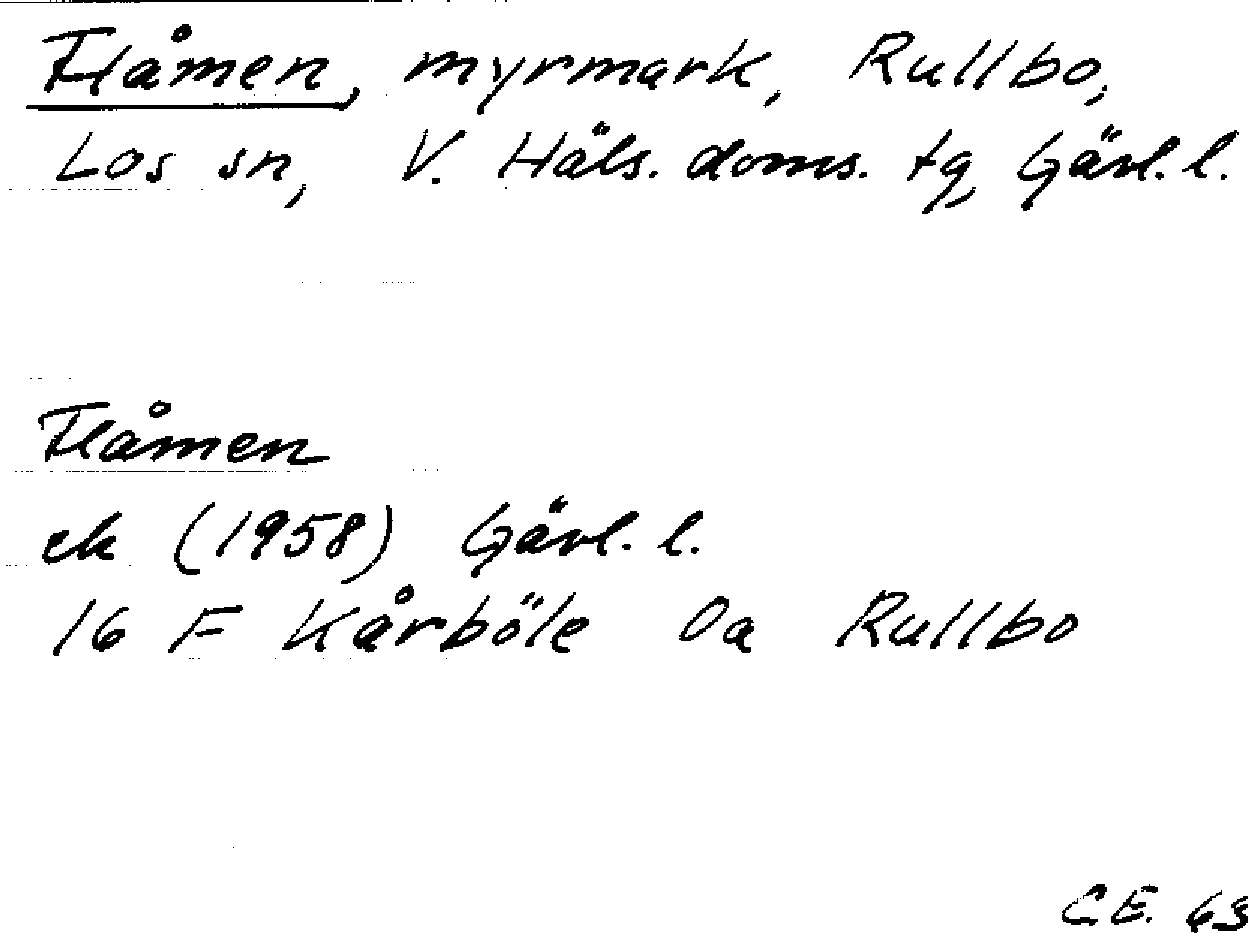 Flåmen, myrmark, Rullbo,
Los sn, V. Häls. doms. tg, Gävl. l.
Flåmen
ek (1958) Gävl. l.
16 F Kårböle 0a Rullbo
C.E. 63